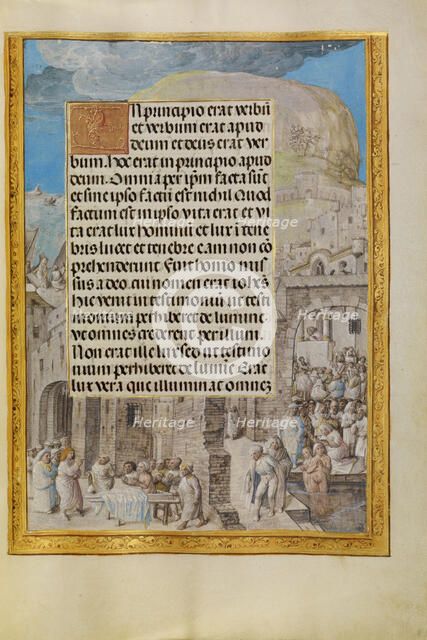 In principio erat verbū
et verbum erat apud
deum et deus erat ver
bum. hoc erat in principio apud
deum. Omnia per ip̄m facta sūt
et sine ipso factū est nichil Quod
factum est in ipso vita erat et vi
ta erat lux hominum et lux ī tene
bris lucet et tenebre eam non cō
prehenderunt Fuit homo mis
sus a deo, cui nomen erat iohēs
hic venit in testimoniū ut testi
monium perhiberet de lumine
ut omnes crederent per illum.
Non erat ille lux sed ut testimo
nium perhiberet de lumīe Erat
lux vera que illuminat omnēz
Heritage
Heritage
Heritage
Heritage
Heritage
Heritage
Heritage
Heritage